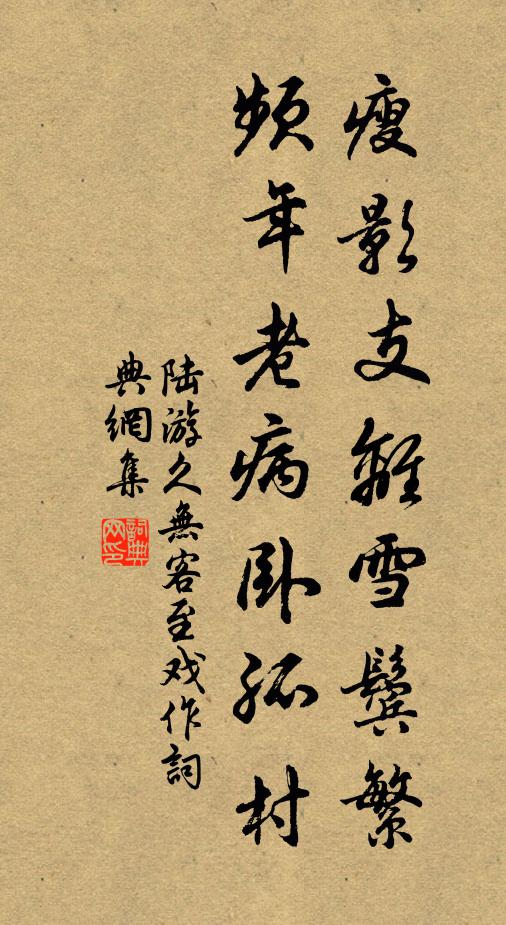 瘦影支離雪鬢繁
頻年老病臥孤村
陆游久無客至戏作詞
典網集
詞典网印